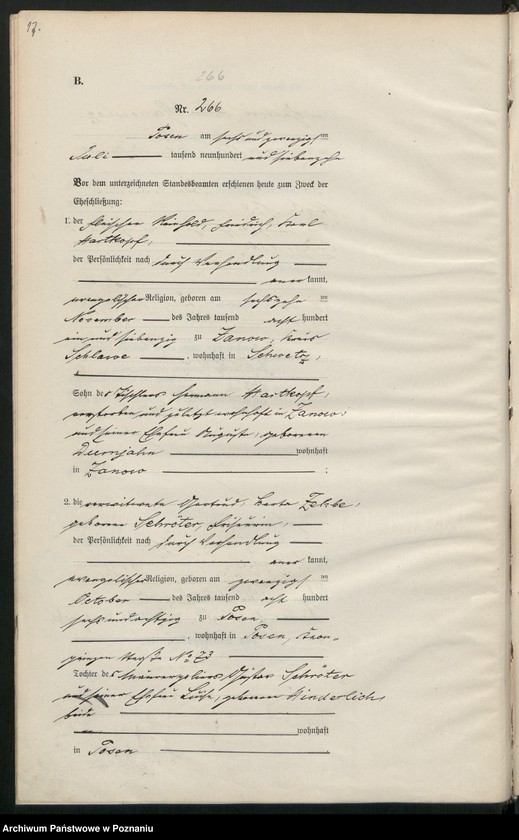 17.
266
B.
Nr. 266
Posen am sechsundzwanzigsten
Juli tausend neunhundert und siebenzehn
Vor dem unterzeichneten Standesbeamten erschienen heute zum Zweck der
Eheschließung:
1. der Fleischer Reinhold, Friedrich, Karl
Hartkopf,
der Persönlichkeit nach durch Verhandlung
anerkannt,
evangelischer Religion, geboren am sechszehnten
November des Jahres tausend acht hundert
ein und siebenzig zu Zanow, Kreis
Schlawe, wohnhaft in Schwetz,
Sohn des Tischlers Hermann Hartkopf,
verstorben und zuletzt wohnhaft in Zanow,
und seiner Ehefrau Auguste, geborenen
wohnhaft
in Zanow ;
2. die verwitwete Gertrud, Berta
geborene Schröter, Friseurin,
der Persönlichkeit nach durch Verhandlung
anerkannt,
evangelischer Religion, geboren am zwanzigsten
October des Jahres tausend acht hundert
sechsundachtzig zu Posen,
, wohnhaft in Posen, Kron-
prinzen Straße No 73
Tochter des Maurerpoliers Gustav Schröter
und seiner Ehefrau Luise, geborenen Hinderlich,
beide
wohnhaft
in Posen
Archiwum Państwowe w Poznaniu